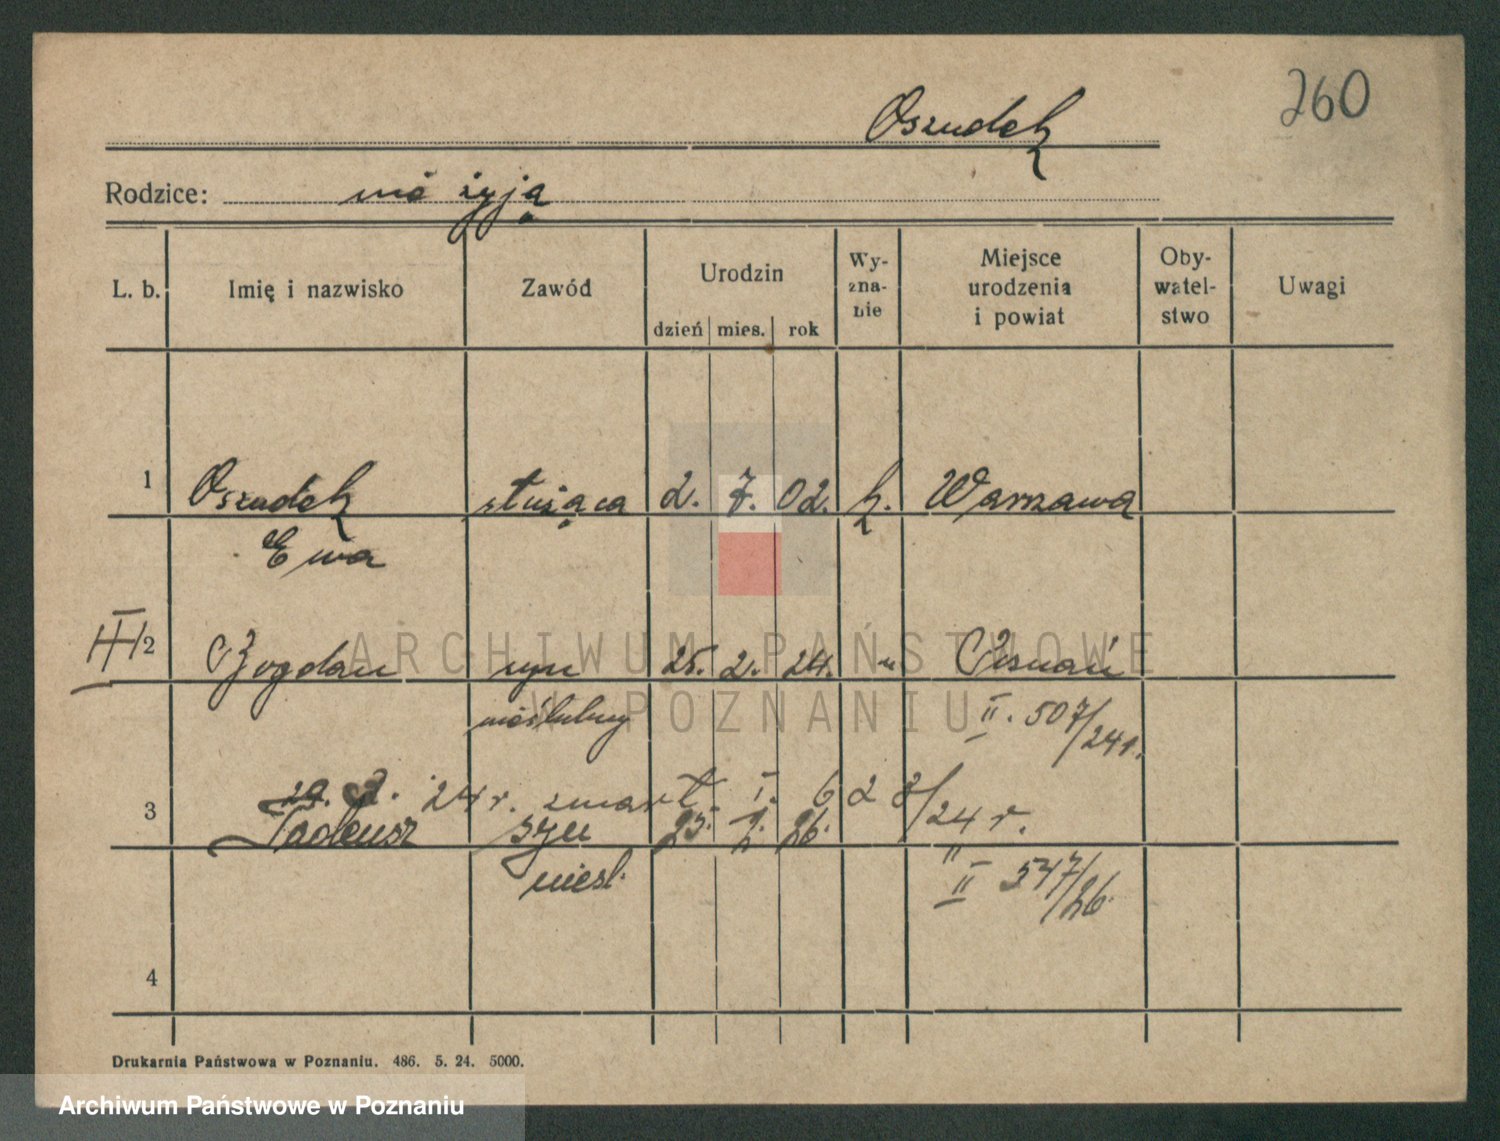 260
Oszudek
Rodzice: nie żyją
L. b. Imię i nazwisko Zawód Urodzin dzień mies. rok Wy-zna-nie Miejsce urodzenia i powiat Oby-watel-stwo Uwagi
1 Oszudek służąca 2. 7. 02. k. Warszawa
Ewa
III 2 Bogdan syn 25. 2. 24. " Poznań
nieślubny II. 507/24r.
24 r. zmart. I. 628/24 r.
3 Tadeusz syn 25. 7. 26. "
nieśl. II 547/26.
4
Drukarnia Państwowa w Poznaniu. 486. 5. 24. 5000.
ARCHIWUM PAŃSTWOWE
W POZNANIU
Archiwum Państwowe w Poznaniu